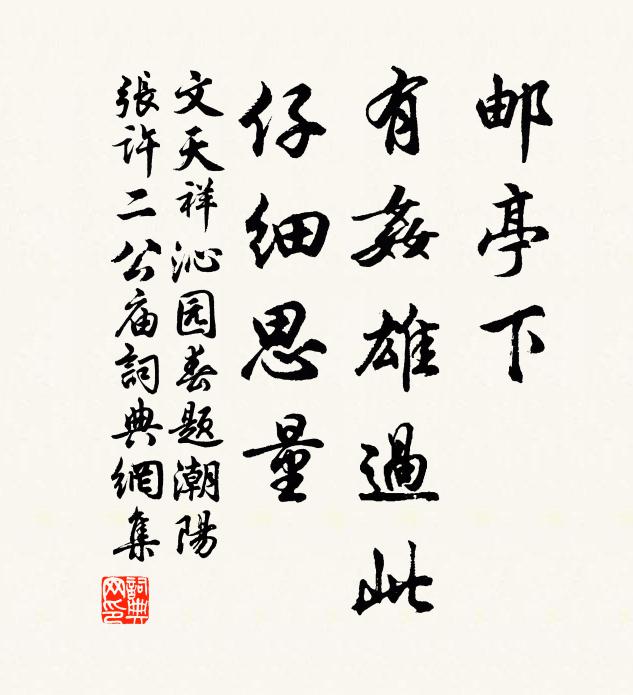 邮亭下
有姦雄過此
仔细思量
文天祥沁园春题潮陽
張许二公庙詞典網集
詞典网印